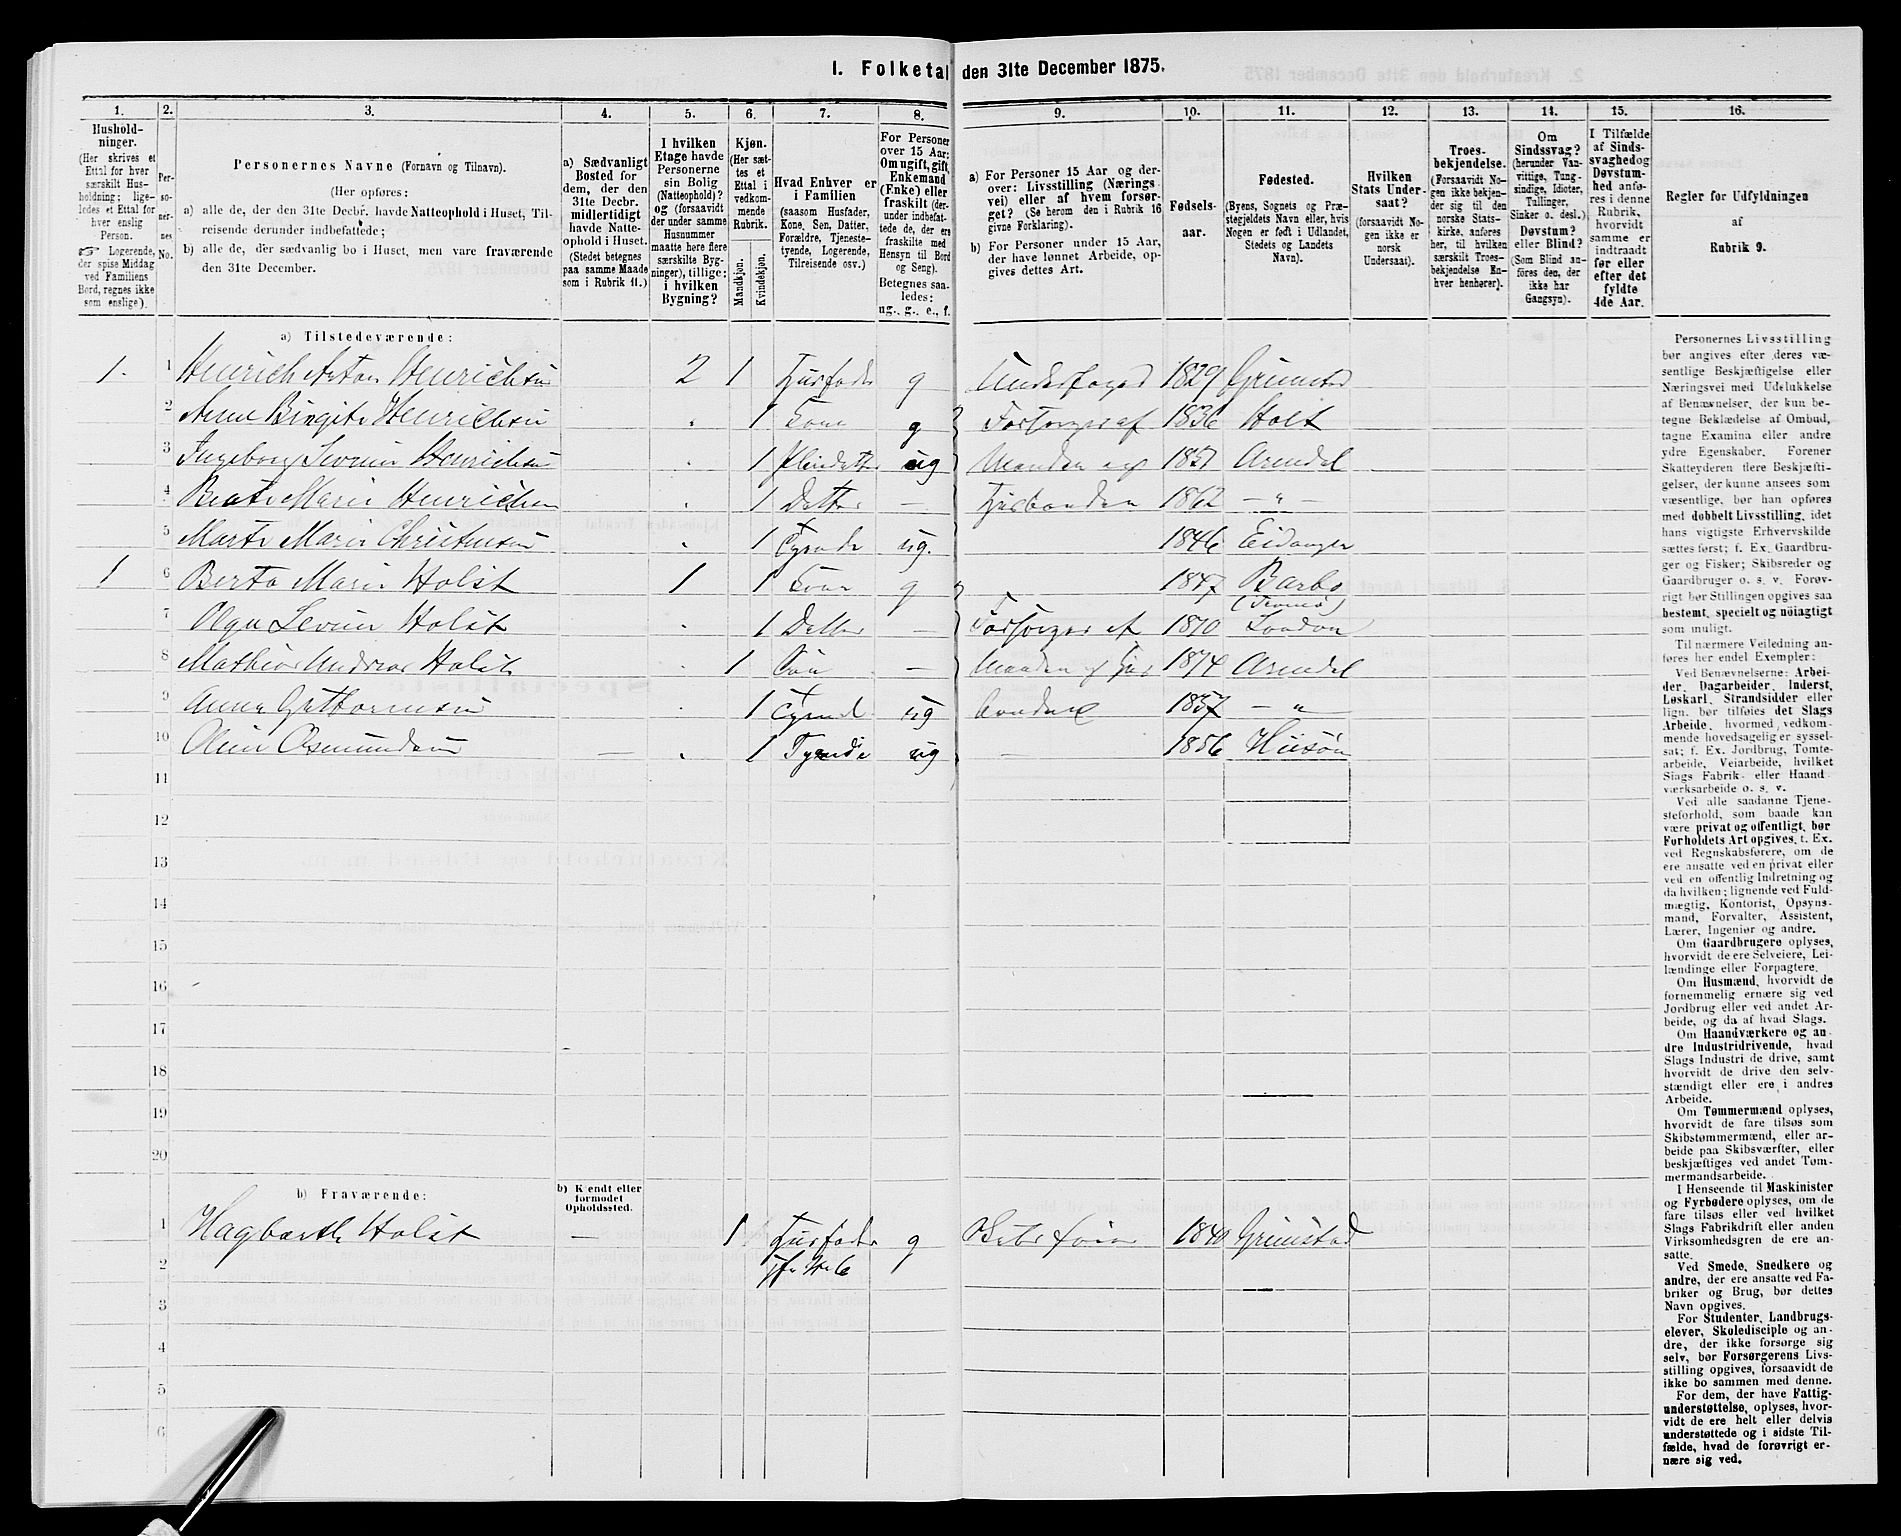 1. Folketal den 31te December 1875.
1. 2. 3. 4. 5. 6. 7. 8. 9. 10. 11. 12. 13. 14. 15. 16.
Hushold-
ninger.
(Her skrives et
Ettal for hver
særskilt Hus-
holdning; lige-
ledes et Ettal for
hver enslig
Person.
☞ Logerende,
der spise Middag
ved Familiens
Bord, regnes ikke
som enslige).
Per-
so-
ner-
nes
No.
Personernes Navne (Fornavn og Tilnavn).
(Her opføres:
a) alle de, der den 31te Decbr. havde Natteophold i Huset, Til-
reisende derunder indbefattede;
b) alle de, der sædvanlig bo i Huset, men vare fraværende
den 31te December.
a) Sædvanligt
Bosted for
dem, der den
31te Decbr.
midlertidigt
havde Natte-
ophold i Huset.
(Stedet betegnes
paa samme Maade
som i Rubrik 11.)
I hvilken
Etage havde
Personerne
sin Bolig
(Natteophold)?
og (forsaavidt
der under samme
Husnummer
maatte høre flere
særskilte Byg-
ninger), tillige:
i hvilken
Bygning?
Kjøn.
(Her sæt-
tes et
Ettal i
vedkom-
mende
Rubrik.
Mandkjøn.
Kvindekjøn.
Hvad Enhver er
i Familien
(saasom Husfader,
Kone, Søn, Datter,
Forældre, Tjeneste-
tyende, Logerende,
Tilreisende osv.)
For Personer
over 15 Aar:
Om ugift, gift,
Enkemand
(Enke) eller
fraskilt (der-
under indbefat-
tede de, der ere
fraskilte med
Hensyn til Bord
og Seng).
Betegnes saa-
ledes:
ug., g., e., f.
a) For Personer 15 Aar og der-
over: Livsstilling (Nærings-
vei) eller af hvem forsør-
get? (Se herom den i Rubrik 16
givne Forklaring).
b) For Personer under 15 Aar,
der have lønnet Arbeide, op-
gives dettes Art.
Fødsels-
aar.
Fødested.
(Byens, Sognets og Præ-
stegjeldets Navn eller, hvis
Nogen er født i Udlandet,
Stedets og Landets
Navn).
Hvilken
Stats Under-
saat?
(forsaavidt No-
gen ikke er
norsk
Undersaat).
Troes-
bekjendelse.
(Forsaavidt No-
gen ikke bekjen-
der sig til den
norske Stats-
kirke, anføres
her, til hvilken
særskilt Troes-
bekjendelse En-
hver henhører).
Om
Sindssvag?
(herunder Van-
vittige, Tung-
sindige, Idioter,
Tullinger,
Sinker o. desl.)
Døvstum?
eller Blind?
(Som Blind an-
føres den, der
ikke har
Gangsyn).
I Tilfælde
af Sinds-
svaghed og
Døvstum-
hed anfø-
res i denne
Rubrik,
hvorvidt
samme er
indtraadt
før eller
efter det
fyldte
4de Aar.
Regler for Udfyldningen
af
Rubrik 9.
a) Tilstedeværende:
1. 1 Hinrich Anton Henrichsen 2 1 Husfader g Underfoged 1829 Grimstad
2 Anne Birgite Henrichsen 1 Kone g Forsørges af 1836 Holt
3 Ingeborg Severine Henrichsen 1 Pleiedatter ug Manden og 1851 Arendal
4 Beate Marie Henrichsen 1 Datter — Husbonden 1862 — " —
5 Marte Marie Christensen 1 Tyende ug. 1846 Eidanger
1 6 Berta Marie Holst 1 1 Kone g 1847 Barbo
(Tromø)
7 Olga Severine Holst 1 Datter — Forsørges af 1870 London
8 Mathias Andreas Holst 1 Søn — Manden og Hus 1874 Arendal
9 Anna Guttormsen 1 Tyende ug bonden 1857 — " —
10 Oline Osmundsen — 1 Tyende ug — 1856 Hisøn
11
12
13
14
15
16
17
18
19
20
b) Fraværende:
b) Kjendt eller
formodet
Opholdssted.
1 Hagbarth Holst — 1 Husfader g 1840 Grimstad
2 jfr No 6
3
4
5
6
Personernes Livsstilling
bør angives efter deres væ-
sentlige Beskjæftigelse eller
Næringsvei med Udelukkelse
af Benævnelser, der kun be-
tegne Beklædelse af Ombud,
tagne Examina eller andre
ydre Egenskaber. Forener
Skatteyderen flere Beskjæfti-
gelser, der kunne ansees som
væsentlige, bør han opføres
med dobbelt Livsstilling, idet
hans vigtigste Erhvervskilde
sættes først; f. Ex. Gaardbru-
ger og Fisker; Skibsreder og
Gaardbruger o. s. v. Forøv-
rigt bør Stillingen opgives saa
bestemt, specielt og nøiagtigt
som muligt.
Til nærmere Veiledning an-
føres her endel Exempler:
Ved Benævnelserne: Arbei-
der, Dagarbeider, Inderst,
Løskarl, Strandsidder eller
lign. bør tilføies det Slags
Arbeide, hvormed vedkom-
mende hovedsagelig er syssel-
sat; f. Ex. Jordbrug, Tomte-
arbeide, Veiarbeide, hvilket
Slags Fabrik- eller Haand
værksarbeide o. s. v.
Ved alle saadanne Tjene-
steforhold, som baade kan
være privat og offentligt, bør
Forholdets Art opgives, t. Ex.
ved Regnskabsførere, om de
ere ansatte ved en privat eller
ved en offentlig Indretning og
da hvilken; lignende ved Fuld-
mægtig, Kontorist, Opsyns-
mand, Forvalter, Assistent,
Lærer, Ingeniør og andre.
Om Gaardbrugere oplyses,
hvorvidt de ere Selveiere, Lei-
lændinge eller Forpagtere.
Om Husmænd, hvorvidt de
fornemmelig ernære sig ved
Jordbrug eller ved andet Ar-
beide, og da af hvad Slags.
Om Haandværkere og an-
dre Industridrivende, hvad
Slags Industri de drive, samt
hvorvidt de drive den selv-
stændigt eller ere i andres
Arbeide.
Om Tømmermænd oplyses,
hvorvidt de fare tilsøs som
Skibstømmermænd, eller ar-
beide paa Skibsværfter, eller
beskjæftiges ved andet Tøm-
mermandsarbeide.
I Henseende til Maskinister
og Fyrbødere oplyses, om de
fare tilsøs eller ved hvilket
Slags Fabrikdrift eller anden
Virksomhedsgren de ere an-
satte.
Ved Smede, Snedkere og
andre, der ere ansatte ved Fa-
briker og Brug, bør dettes
Navn opgives.
For Studenter, Landbrugs-
elever, Skoledisciple og an-
dre, der ikke forsørge sig
selv, bør Forsørgerens Livs-
stilling opgives, forsaavidt de
ikke bo sammen med denne.
For dem, der have Fattig-
understøttelse, oplyses, hvor-
vidt de ere helt eller delvis
understøttede og i sidste Til-
fælde, hvad de forøvrigt er-
nære sig ved.